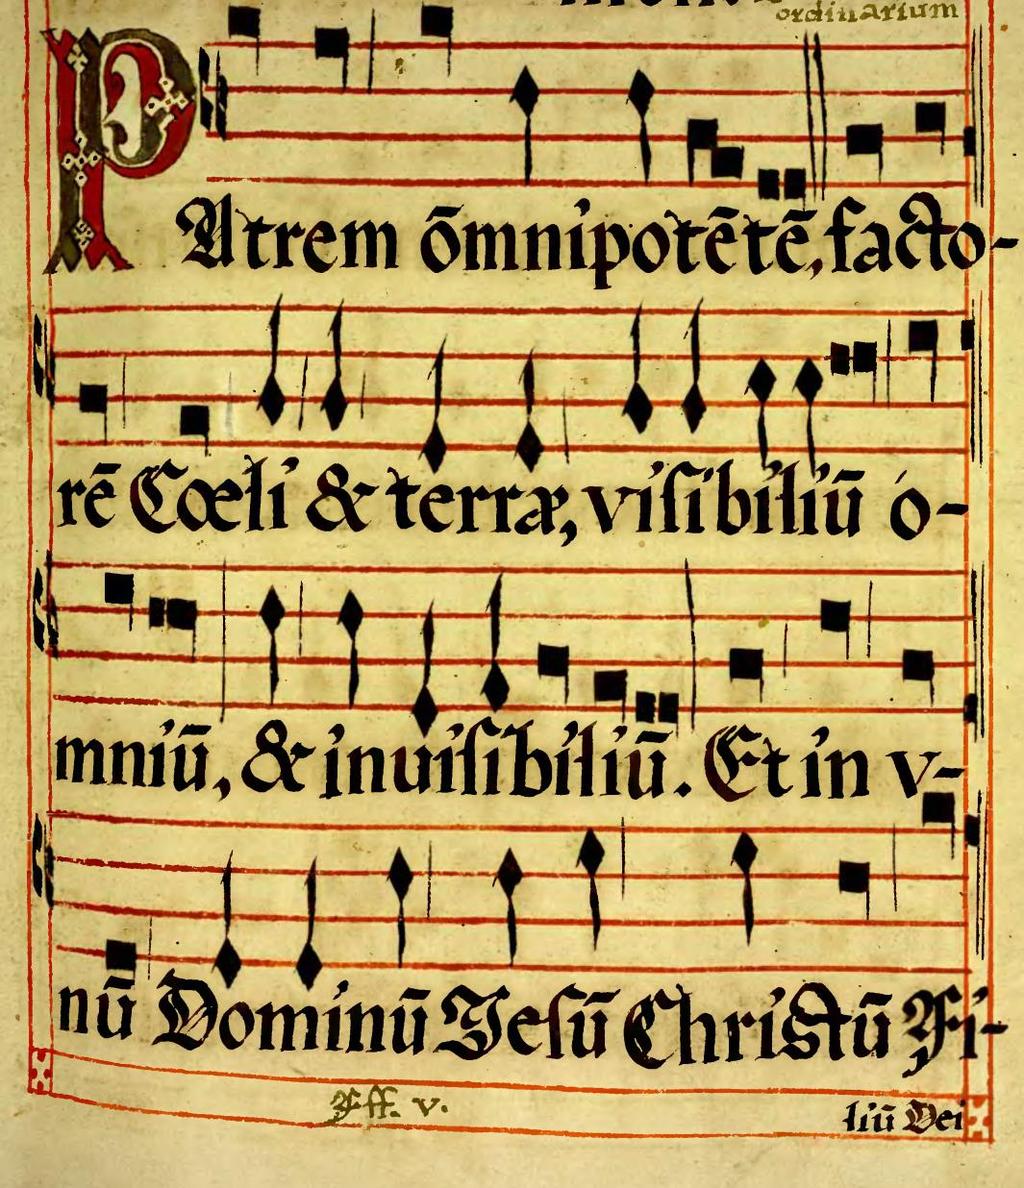 ordinarium
PAtrem ōmnipotētē, facto-
rē Cœli & terræ, viſibiliū o-
mniū, & inuiſibiliū. Et in v-
nū Dominū Ieſū Chriſtū Fi-
Ff. v.
liū Dei